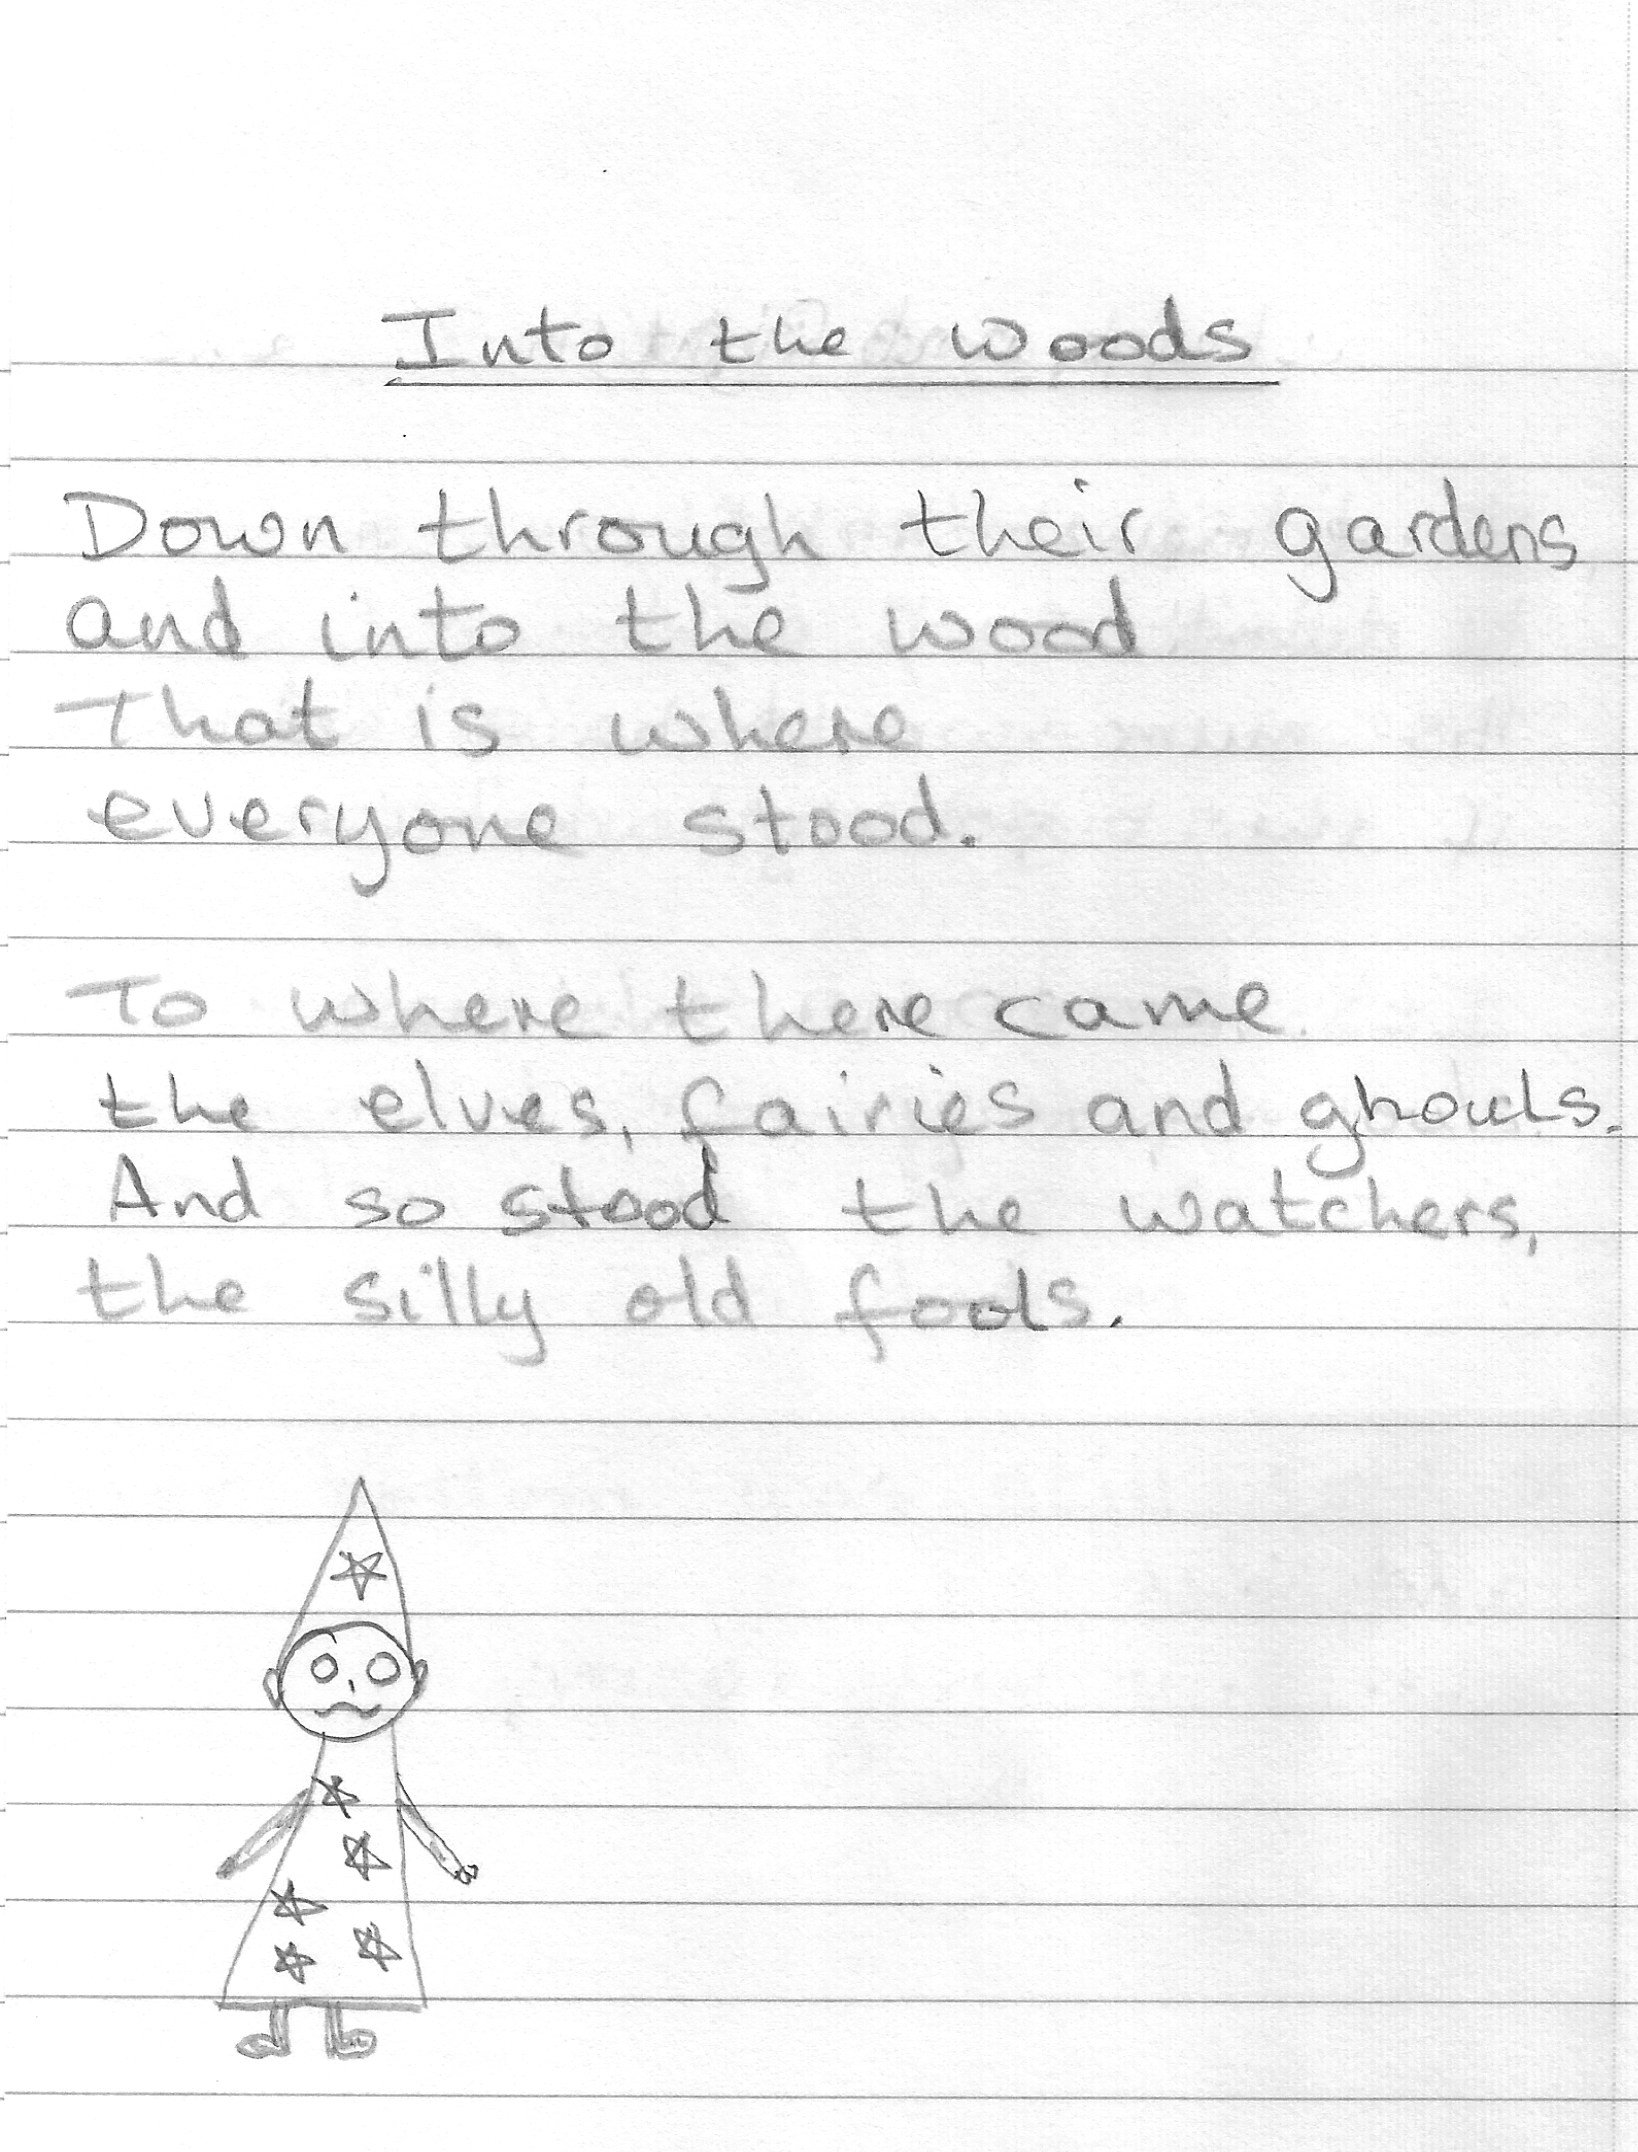 Into the Woods
Down through their gardens
and into the wood
That is where
everyone stood.
To where there came
the elves, fairies and ghouls.
And so stood the watchers,
the silly old fools.